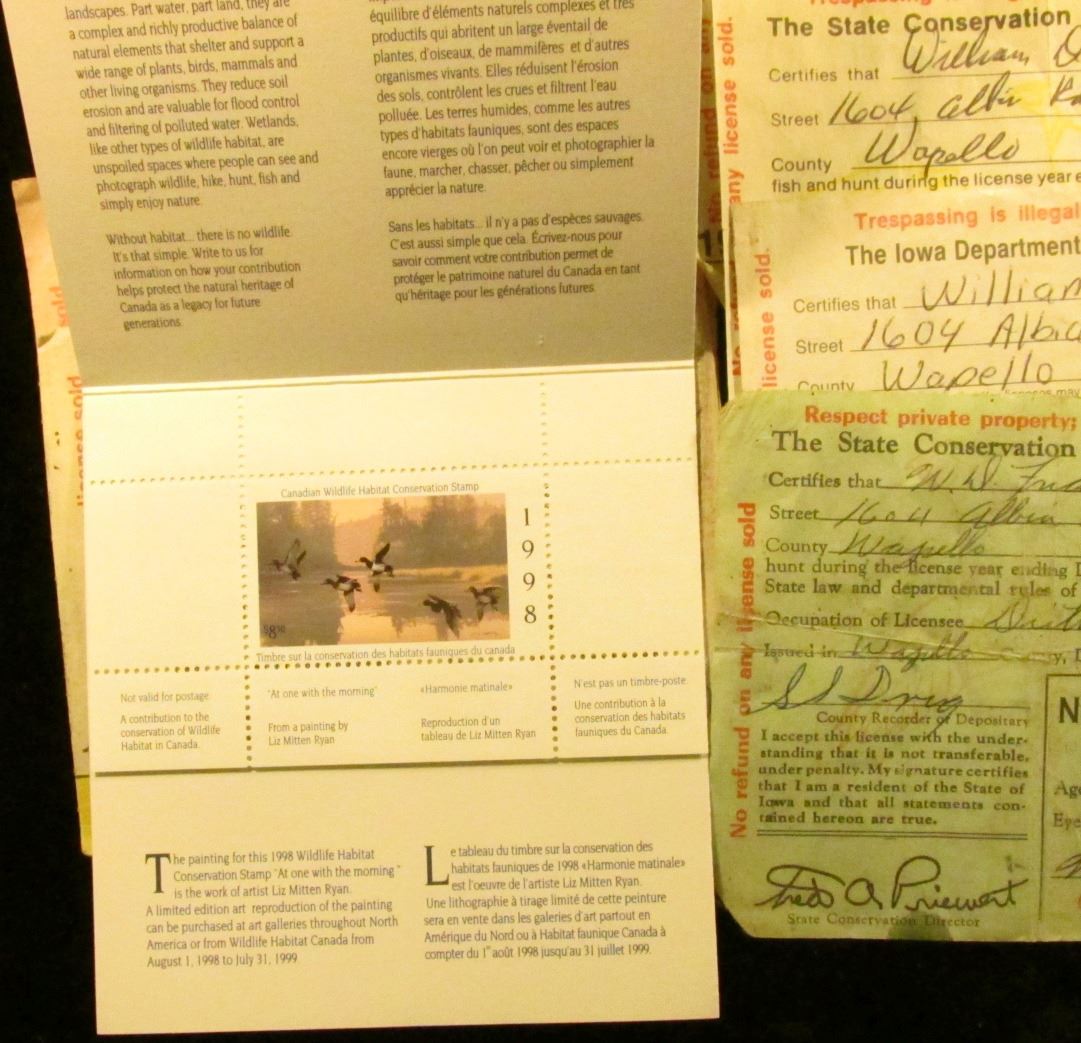 landscapes. Part water, part land, they are
a complex and richly productive balance of
natural elements that shelter and support a
wide range of plants, birds, mammals and
other living organisms. They reduce soil
erosion and are valuable for flood control
and filtering of polluted water. Wetlands,
like other types of wildlife habitat, are
unspoiled spaces where people can see and
photograph wildlife, hike, hunt, fish and
simply enjoy nature.
Without habitat... there is no wildlife.
It's that simple. Write to us for
information on how your contribution
helps protect the natural heritage of
Canada as a legacy for future
generations.
équilibre d'éléments naturels complexes et très
productifs qui abritent un large éventail de
plantes, d'oiseaux, de mammifères et d'autres
organismes vivants. Elles réduisent l'érosion
des sols, contrôlent les crues et filtrent l'eau
polluée. Les terres humides, comme les autres
types d'habitats fauniques, sont des espaces
encore vierges où l'on peut voir et photographier la
faune, marcher, chasser, pêcher ou simplement
apprécier la nature.
Sans les habitats... il n'y a pas d'espèces sauvages.
C'est aussi simple que cela. Écrivez-nous pour
savoir comment votre contribution permet de
protéger le patrimoine naturel du Canada en tant
qu'héritage pour les générations futures.
Canadian Wildlife Habitat Conservation Stamp
1998
$8.50
Timbre sur la conservation des habitats fauniques du canada
Not valid for postage.
A contribution to the
conservation of Wildlife
Habitat in Canada.
"At one with the morning"
From a painting by
Liz Mitten Ryan
«Harmonie matinale»
Reproduction d'un
tableau de Liz Mitten Ryan
N'est pas un timbre-poste.
Une contribution à la
conservation des habitats
fauniques du Canada.
The painting for this 1998 Wildlife Habitat
Conservation Stamp "At one with the morning"
is the work of artist Liz Mitten Ryan.
A limited edition art reproduction of the painting
can be purchased at art galleries throughout North
America or from Wildlife Habitat Canada from
August 1, 1998 to July 31, 1999
Le tableau du timbre sur la conservation des
habitats fauniques de 1998 «Harmonie matinale»
est l'oeuvre de l'artiste Liz Mitten Ryan.
Une lithographie à tirage limité de cette peinture
sera en vente dans les galeries d'art partout en
Amérique du Nord ou à Habitat faunique Canada à
compter du 1er août 1998 jusqu'au 31 juillet 1999.
license sold
refund on any
any license sold.
The State Conservation
Certifies that William D
Street 1604 Albia
County Wapello
fish and hunt during the license year e
Trespassing is illegal
The Iowa Department
Certifies that William
Street 1604 Albia
County Wapello
license sold.
Respect private property;
The State Conservation
Certifies that W. D.
Street 1604 Albia
County Wapello
hunt during the license year ending
State law and departmental rules of
Occupation of Licensee
Issued in Wapello
County Recorder or Depositary
I accept this license with the under-
standing that it is not transferable,
under penalty. My signature certifies
that I am a resident of the State of
Iowa and that all statements con-
tained hereon are true.
No refund on any license sold
Fred A. Priewert
State Conservation Director
N
Age
Eye